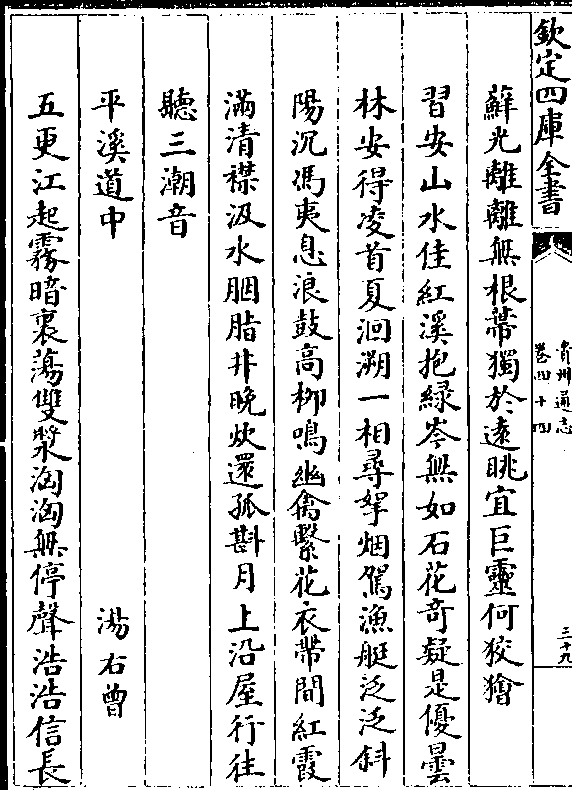 欽定四庫全書
貴州通志
卷四十四
三十九
蘚光離離無根蒂獨於遠眺宜巨靈何狡獪
習安山水佳紅溪抱綠岑無如石花奇疑是優曇
林安得凌首夏洄溯一相尋拏烟駕漁艇泛泛斜
陽沉馮夷息浪鼓高柳鳴幽禽繫花衣帶間紅霞
滿清襟汲水胭脂井晚炊還孤斟月上沿屋行往
聽三潮音
平溪道中
湯右曾
五更江起霧暗裏蕩雙槳洶洶無停聲浩浩信長